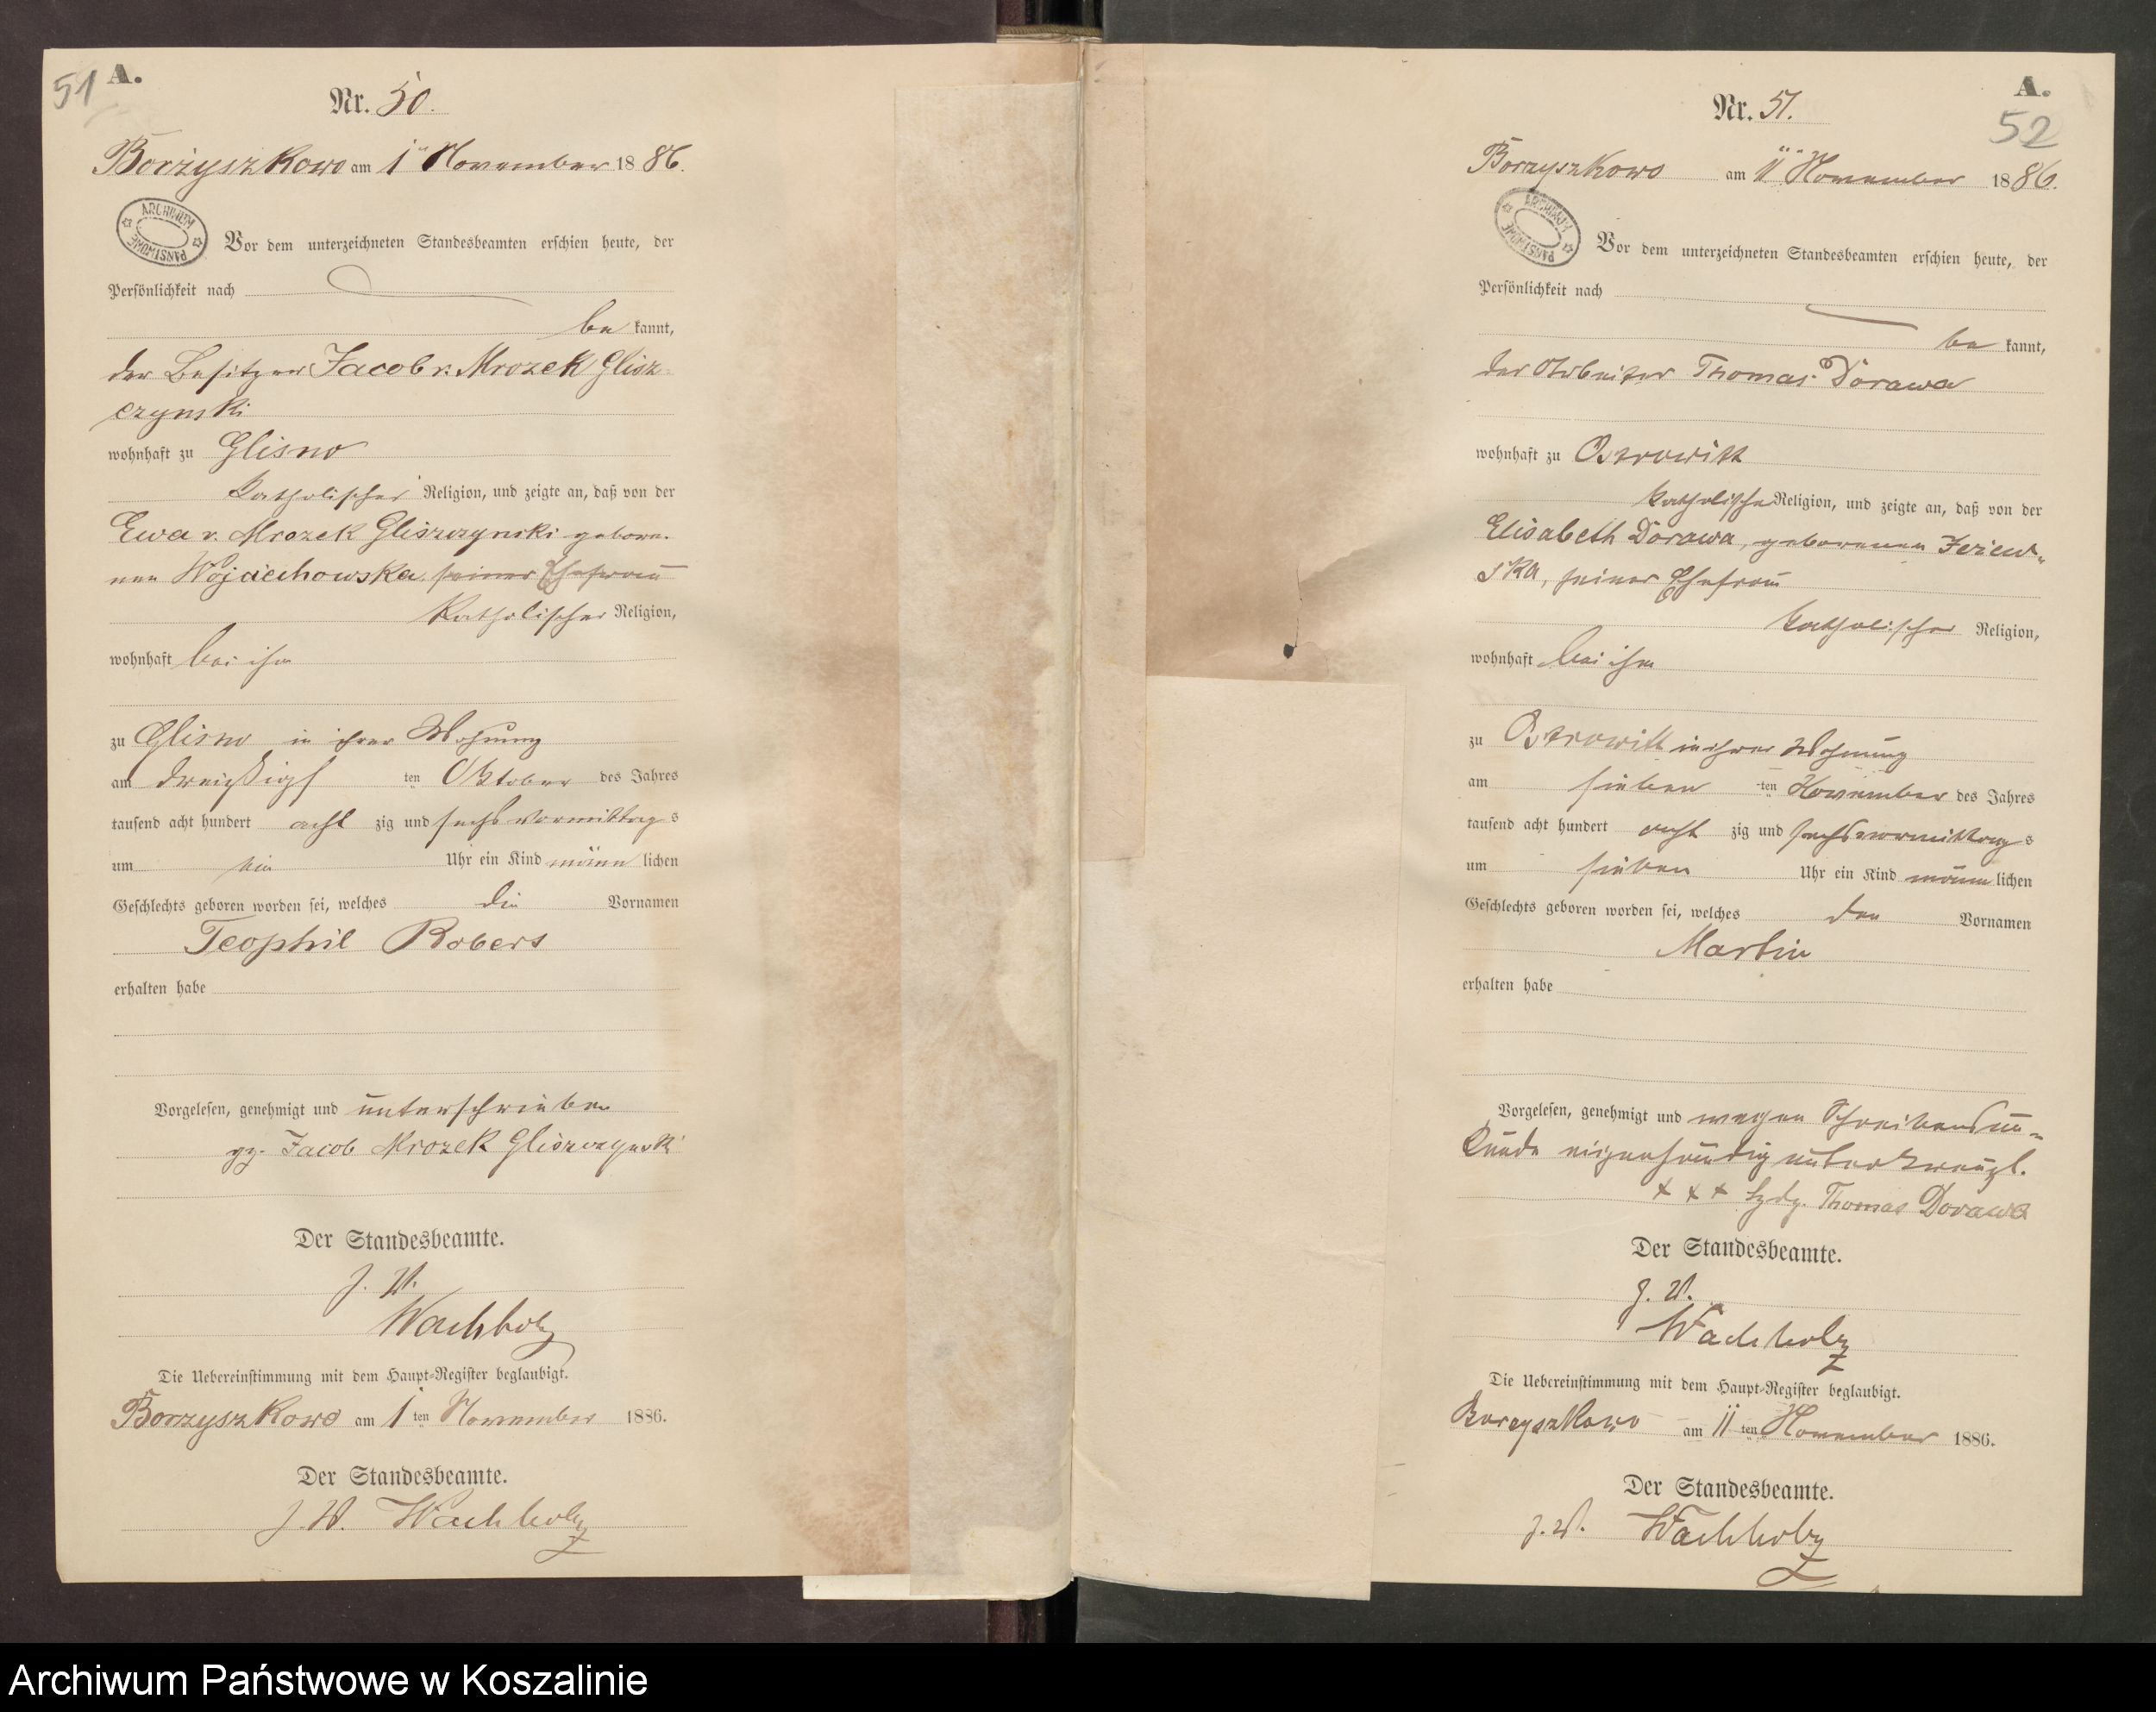 51 A.
Nr. 50.
Borzyszkowo am 1 ten November 1886.
ARCHIWUM PAŃSTWOWE
Vor dem unterzeichneten Standesbeamten erschien heute, der
Persönlichkeit nach
be kannt,
der Besitzer Jacob v. Mrozek Glisz-
czynski
wohnhaft zu Glisno
katholischer Religion, und zeigte an, daß von der
Ewa v. Mrozek Gliszczynski gebore-
nen Wojciechowska seiner Ehefrau
katholischer Religion,
wohnhaft bei ihm
zu Glisno in ihrer Wohnung
am dreißigs ten Oktober des Jahres
tausend acht hundert acht zig und sechs vormittags
um Uhr ein Kind männ lichen
Geschlechts geboren worden sei, welches die Vornamen
Teophil Robert
erhalten habe
Vorgelesen, genehmigt und unterschrieben
gz. Jacob Mrozek Gliszczynski
Der Standesbeamte.
J. V.
Wachholz
Die Uebereinstimmung mit dem Haupt-Register beglaubigt.
Borzyszkowo am 1 ten November 1886.
Der Standesbeamte.
J. V. Wachholz
A.
52
Nr. 51.
Borzyszkowo am 11 November 1886.
ARCHIWUM PAŃSTWOWE
Vor dem unterzeichneten Standesbeamten erschien heute, der
Persönlichkeit nach
be kannt,
der Arbeiter Thomas Dorawa
wohnhaft zu Ostrowitt
katholische Religion, und zeigte an, daß von der
Elisabeth Dorawa, geborenen Jeziew-
ska, seiner Ehefrau
katholischer Religion,
wohnhaft bei ihm
zu Ostrowitt in ihrer Wohnung
am sieben ten November des Jahres
tausend acht hundert acht zig und sechs vormittags
um sieben Uhr ein Kind männ lichen
Geschlechts geboren worden sei, welches den Vornamen
Martin
erhalten habe
Vorgelesen, genehmigt und wegen Schreibensun-
kunde eigenhändig unterkreuzt.
+ + + Thomas Dorawa
Der Standesbeamte.
J. V.
Wachholz
Die Uebereinstimmung mit dem Haupt-Register beglaubigt.
Borzyszkowo am 11 ten November 1886.
Der Standesbeamte.
J. V. Wachholz
Archiwum Państwowe w Koszalinie